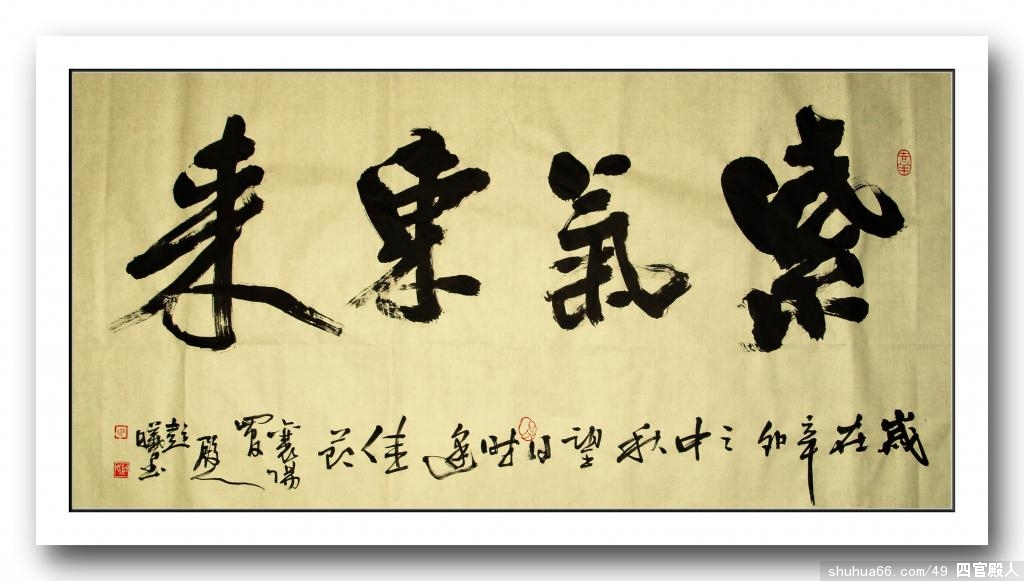 紫氣東來
歲在辛卯之中秋望日时逢佳节
襄陽
四官
殿
彭
曦书
shuhua66.com/49 四官殿人